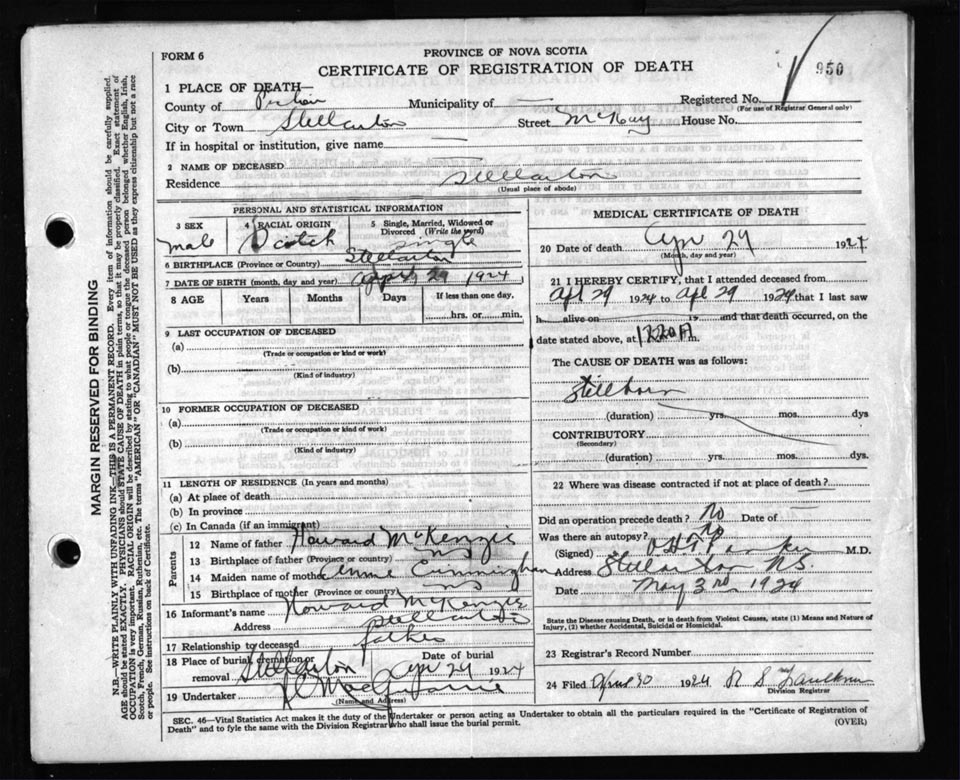 FORM 6
PROVINCE OF NOVA SCOTIA
CERTIFICATE OF REGISTRATION OF DEATH
950
1 PLACE OF DEATH—
County of Pictou Municipality of — Registered No.
(For use of Registrar General only)
City or Town Stellarton Street McKay House No.
If in hospital or institution, give name —
2 NAME OF DECEASED
Residence Stellarton
(Usual place of abode)
PERSONAL AND STATISTICAL INFORMATION
3 SEX 4 RACIAL ORIGIN 5 Single, Married, Widowed or Divorced (Write the word)
male Scotch single
6 BIRTHPLACE (Province or Country) Stellarton
7 DATE OF BIRTH (month, day and year) April 29 1924
8 AGE Years Months Days If less than one day,
hrs. or min.
9 LAST OCCUPATION OF DECEASED
(a)
(Trade or occupation or kind or work)
(b)
(Kind of industry)
10 FORMER OCCUPATION OF DECEASED
(a)
(Trade or occupation or kind or work)
(b)
(Kind of industry)
11 LENGTH OF RESIDENCE (In years and months)
(a) At place of death
(b) In province
(c) In Canada (if an immigrant)
Parents
12 Name of father Howard McKenzie
13 Birthplace of father (Province or country) NS
14 Maiden name of mother Annie Cunningham
15 Birthplace of mother (Province or country) NS
16 Informant's name Howard McKenzie
Address Stellarton
17 Relationship to deceased father
18 Place of burial, cremation or removal Stellarton Date of burial Apr 29 1924
19 Undertaker
(Name and Address)
MEDICAL CERTIFICATE OF DEATH
20 Date of death Apr 29 1924
(Month, day and year)
21 I HEREBY CERTIFY, that I attended deceased from
Apl 29 1924 to Apl 29 1924 that I last saw
h alive on 19 and that death occurred, on
date stated above, at m.
The CAUSE OF DEATH was as follows:
Stillborn
(duration) yrs. mos. dys
CONTRIBUTORY
(Secondary)
(duration) yrs. mos. dys.
22 Where was disease contracted if not at place of death?
Did an operation precede death? No Date of
Was there an autopsy? No
(Signed) Parker M.D.
Address Stellarton NS.
Date May 3rd 1924
State the Disease causing Death, or in death from Violent Causes, state (1) Means and Nature of Injury, (2) whether Accidental, Suicidal or Homicidal.
23 Registrar's Record Number
24 Filed April 30 1924 R S Faulkner
Division Registrar
SEC. 46—Vital Statistics Act makes it the duty of the Undertaker or person acting as Undertaker to obtain all the particulars required in the "Certificate of Registration of
Death" and to fyle the same with the Division Registrar who shall issue the burial permit.
(OVER)
MARGIN RESERVED FOR BINDING
N.B.—WRITE PLAINLY WITH UNFADING INK—THIS IS A PERMANENT RECORD. Every item of information should be carefully supplied.
AGE should be stated EXACTLY. PHYSICIANS should STATE CAUSE OF DEATH in plain terms, so that it may be properly classified. Exact statement of
OCCUPATION is very important. RACIAL ORIGIN will be described by stating to what people or tongue the deceased person belonged whether English, Irish,
Scotch, French, German, Russian, Ruthenian, etc. The terms "AMERICAN" OR "CANADIAN" MUST NOT BE USED as they express citizenship but not a race
or people. See instructions on back of Certificate.